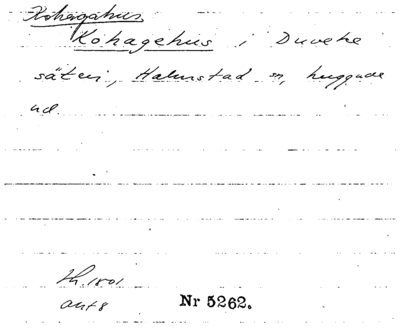 Kohagahus
Kohagehus i Duveke
säteri, Halmstad sn, huggade
ved.
th. 1801
ant 8
Nr 5262.